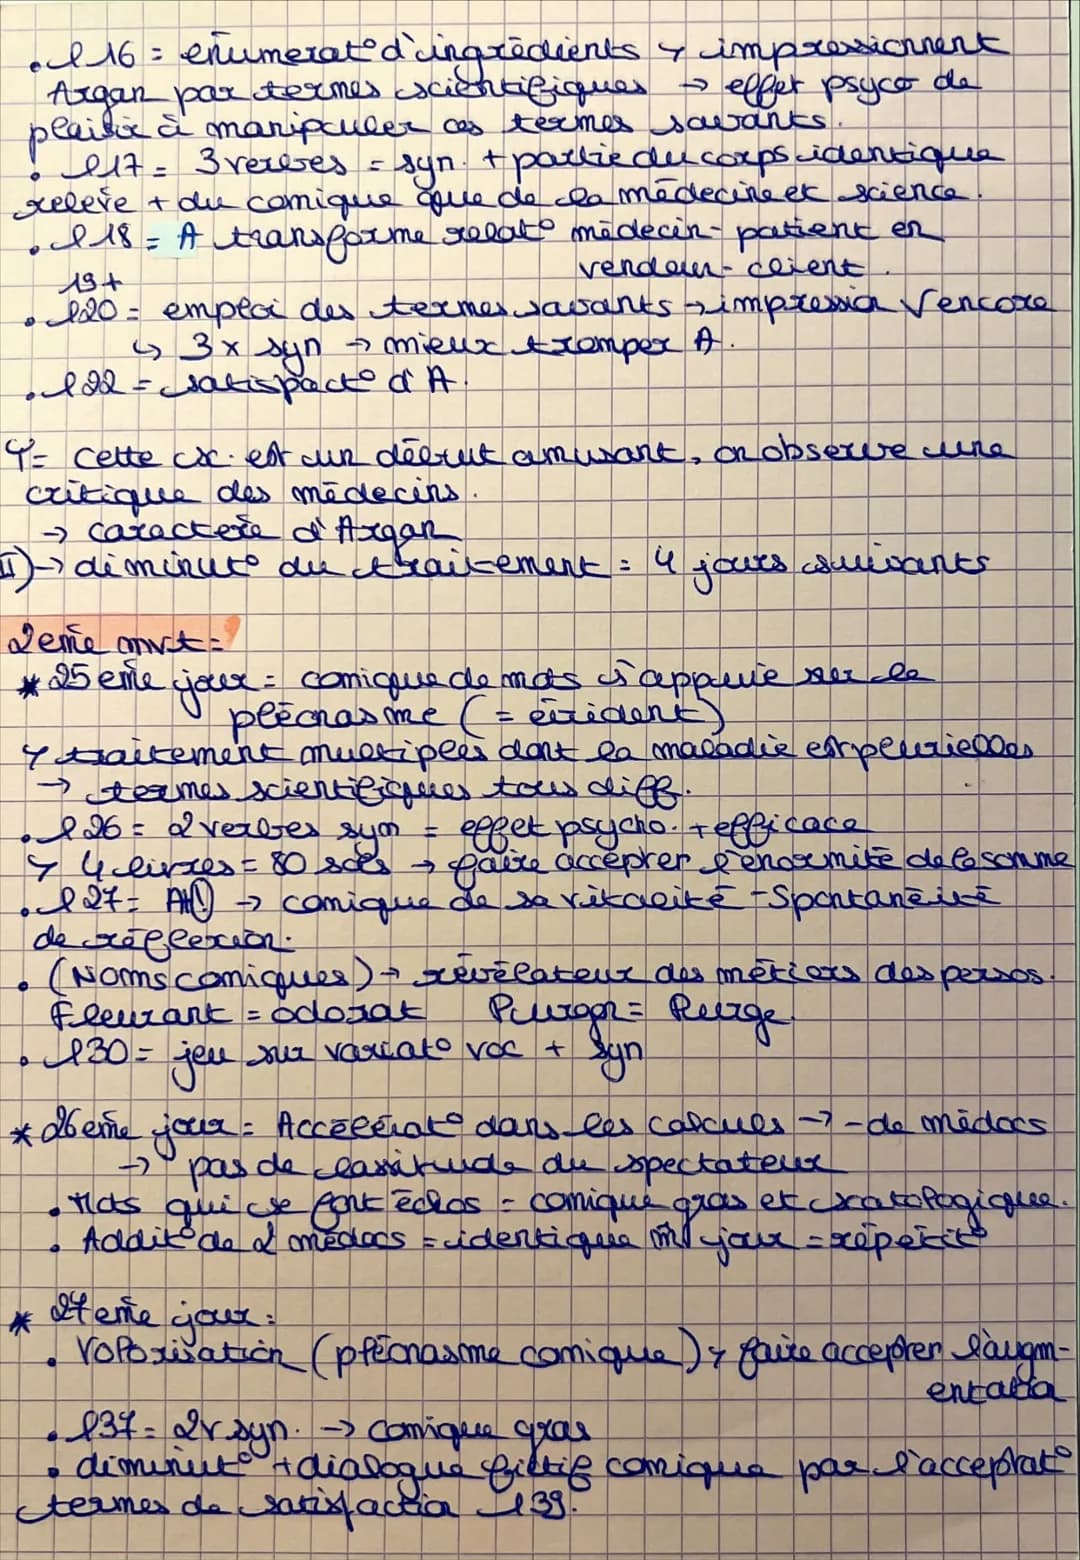 . l 16 = enumerat° d'ingrédients ↳ impressionnent
Argan par termes scientifiques → effet psyco de
plaisir à manipuler ces termes savants.
. l17 = 3 verbes = syn. + partie du corps identique
relève + du comique que de la médecine et science.
. l 18 = A transforme relat° médecin - patient en
vendeur - client.
19+
. l20 = emploi des termes savants → impression √ encore
↳ 3x syn → mieux tromper A.
. l22 = satisfact° d'A.
cette sc. est un début amusant, on observe une
critique des médecins.
→ caractère d'Argan
II) → diminut° du traitement = 4 jours suivants
2eme mvt =
* 25 eme jour = comique de mots s'appuie sur le
pléonasme (= évident)
↳ traitement multiples dont la maladie est plurielles
→ termes scientifiques tous diff.
. l 26 = 2 verbes syn = effet psycho. + efficace
↳ 4 livres = 80 sols → faire accepter l'énormité de la somme
. l 27 = Ah! → comique de sa vitalité - Spontanéité
de réflexion.
. (Noms comiques) → révélateur des métiers des persos.
Fleurant = odorat Purgon = Purge
. l30 = jeu sur variat° voc + syn
* 26 eme jour = Accélérat° dans les calculs → - de médocs
→ pas de lassitude du spectateur
. Mots qui se font échos = comique gras et scatologique.
. Addit° de 2 médocs = identique m̂ jour = répétit°
* 27 eme jour :
. Valorisation (pléonasme comique) ↳ faire accepter l'augm-
entation
. l37 = 2v syn. → comique gras
. diminut° + dialogue fictif comique par l'acceptat°
termes de satisfaction l39.